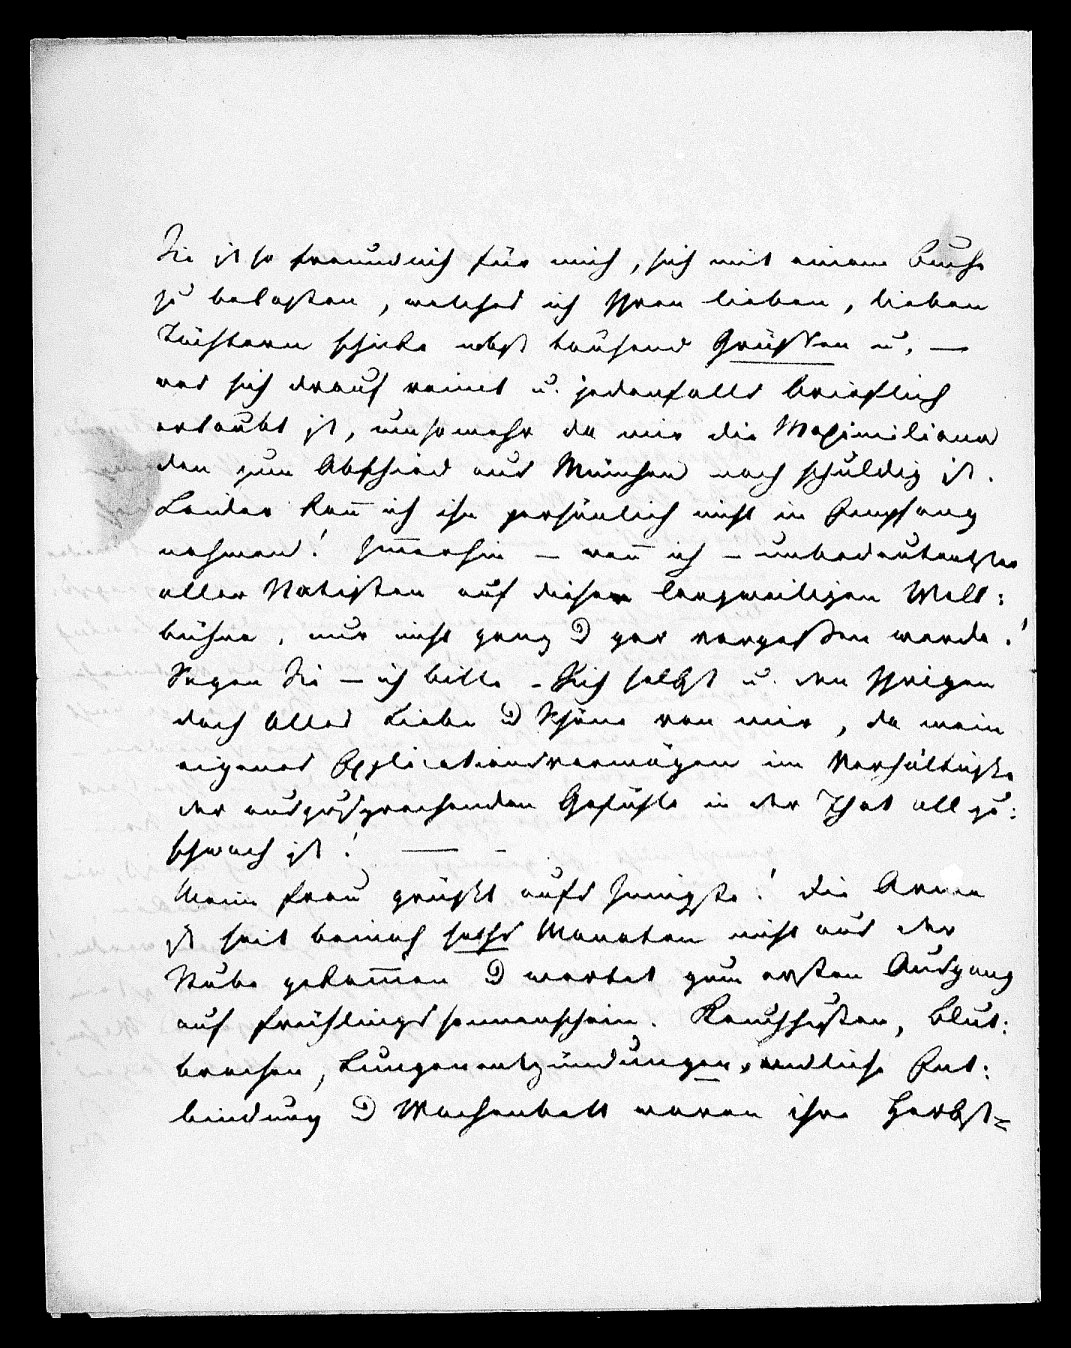 Sie ist so freundlich für mich, sich mit einem Buche
zu belasten, welches ich Ihren lieben, lieben
Töchtern schicke nebst tausend Grüssen u. —
was sich drauf reimt u. jedenfalls brieflich
erlaubt ist, umsomehr da mir die Maximiliana
den zum Abschied aus München noch schuldig ist.
Leider kann ich ihn persönlich nicht in Empfang
nehmen! Immerhin — wenn ich – unbedeutendster
aller Statisten auf dieser langweiligen Welt:
bühne, nur nicht ganz & gar vergessen werde!
Sagen Sie — ich bitte – Sich selbst u. den Ihrigen
doch Alles Liebe & Schöne von mir, da mein
eigenes Applicationsvermögen im Verhältnisse
der auszusprechenden Gefühle in der That allzu:
schwach ist! — –
Meine Frau grüsst aufs Innigste! Die Arme
ist seit beinah sechs Monaten nicht aus der
Stube gekommen & wartet zum ersten Ausgang
auf Frühlingssonnenschein. Keuchhusten, Blut:
brechen, Lungenentzündungen, endliche Ent:
bindung & Wochenbett waren ihre Herbst=